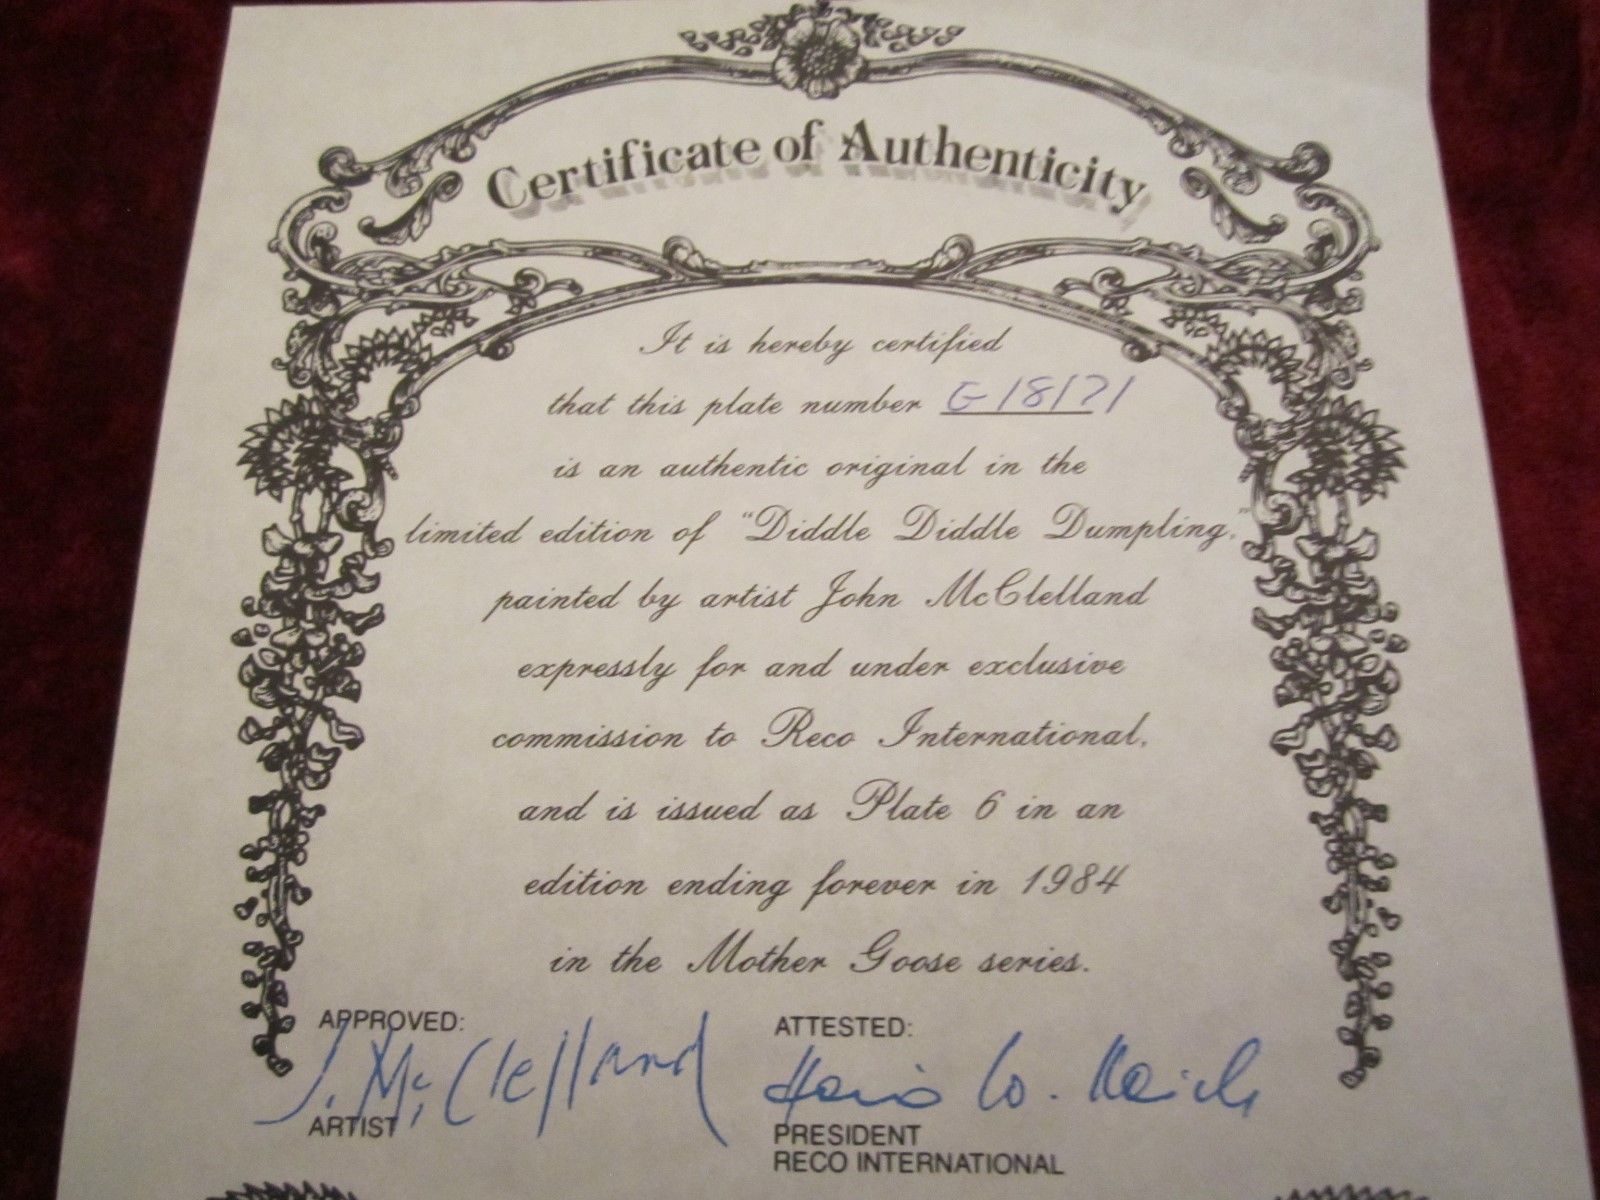 Certificate of Authenticity
It is hereby certified
that this plate number G 18171
is an authentic original in the
limited edition of "Diddle Diddle Dumpling,"
painted by artist John McClelland
expressly for and under exclusive
commission to Reco International,
and is issued as Plate 6 in an
edition ending forever in 1984
in the Mother Goose series.
APPROVED: ATTESTED:
J. McClelland
ARTIST PRESIDENT
RECO INTERNATIONAL